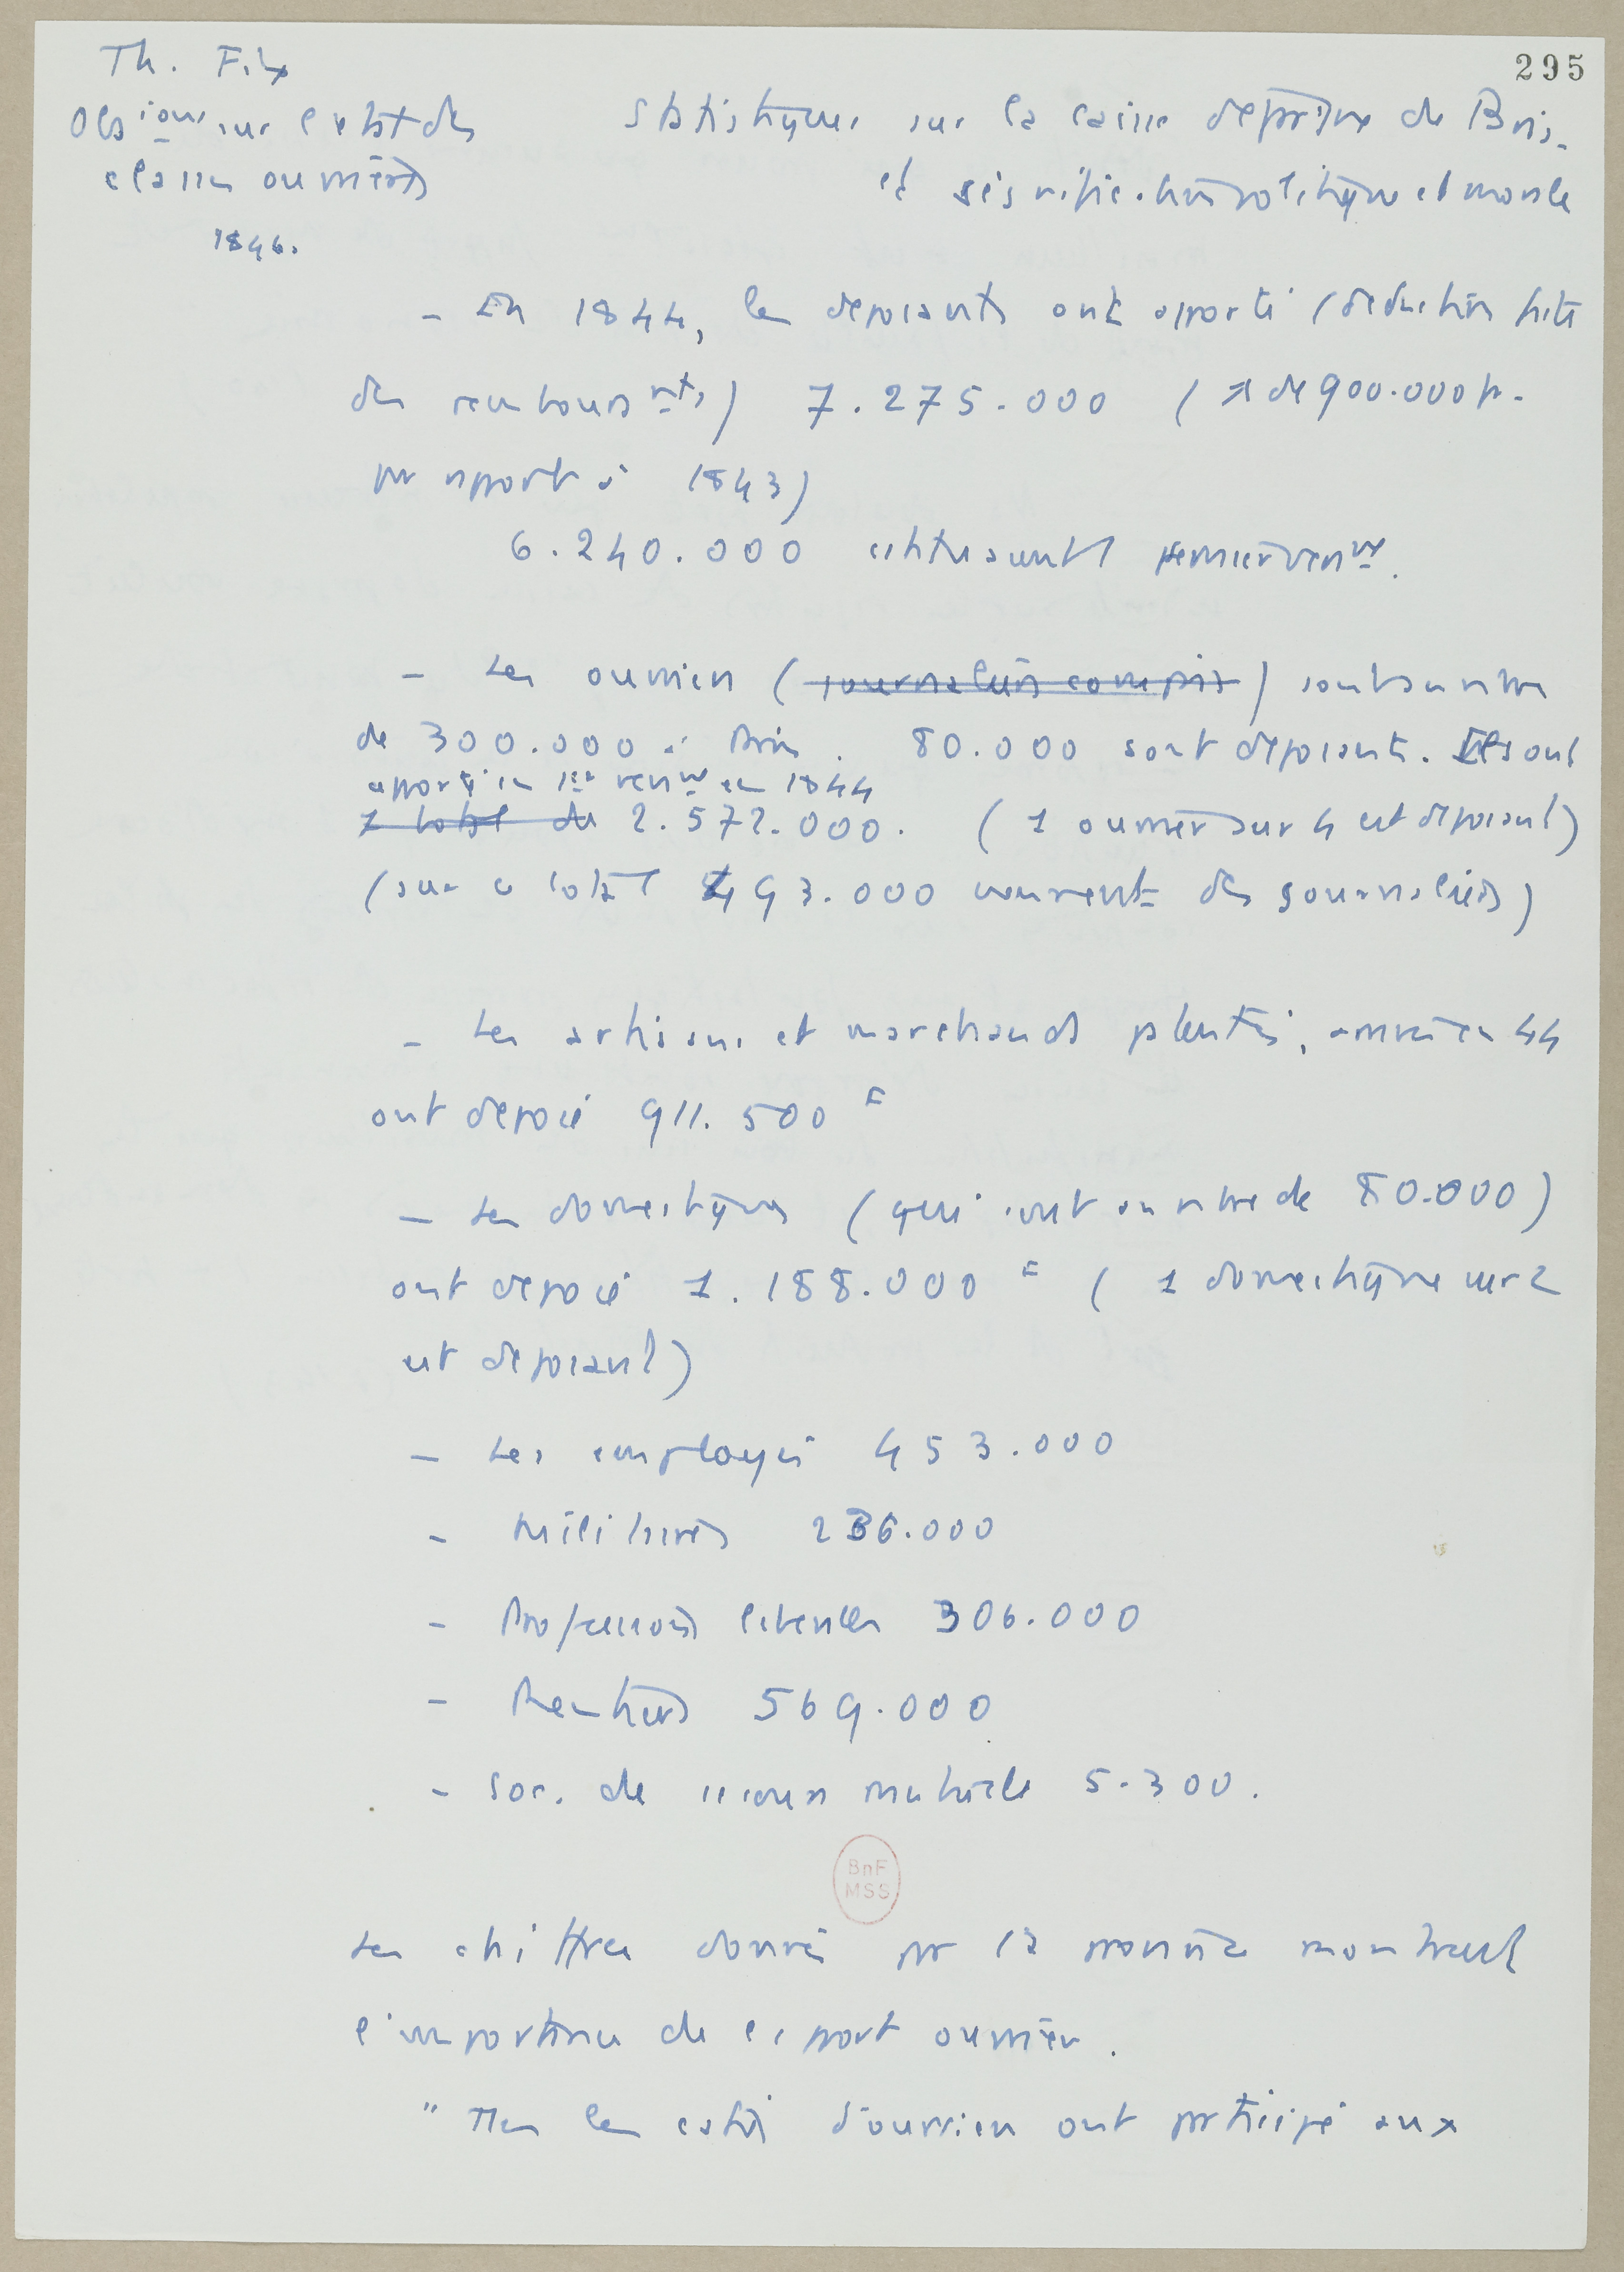 295
Th. Fix
Obs ions sur l'etat des
classes ouvrières
1846.
Statistiques sur la caisse d'épargne de Paris.
et sa signific. politique et morale
- En 1844, les deposants ont apporté (déduction faite
des rembours nts) 7.275.000 (1 de 900.000 fr.
par rapport à 1843)
6.240.000 constituaient 1er versemt.
- Les ouvriers (journaliers compris) sont au nbre
de 300.000 à Paris. 80.000 sont deposants. Ils ont
apporté en 1er versmt en 1844
1 total de 2.572.000. (1 ouvrier sur 4 est deposant)
(sur ce total 493.000 viennent des journaliers)
- Les artisans et marchands patentés, année 44
ont deposé 911.500 F
- Les domestiques (qui sont au nbre de 80.000)
ont deposé 1.188.000 F (1 domestique sur 2
est deposant)
- Les employés 453.000
- Militaires 236.000
- Professions liberales 306.000
- Rentiers 569.000
- Soc. de secours mutuels 5.300.
BnF
MSS
Les chiffres donnés par la province montrent
l'importance de l'apport ouvrier.
" Tous les états d'ouvriers ont participé aux